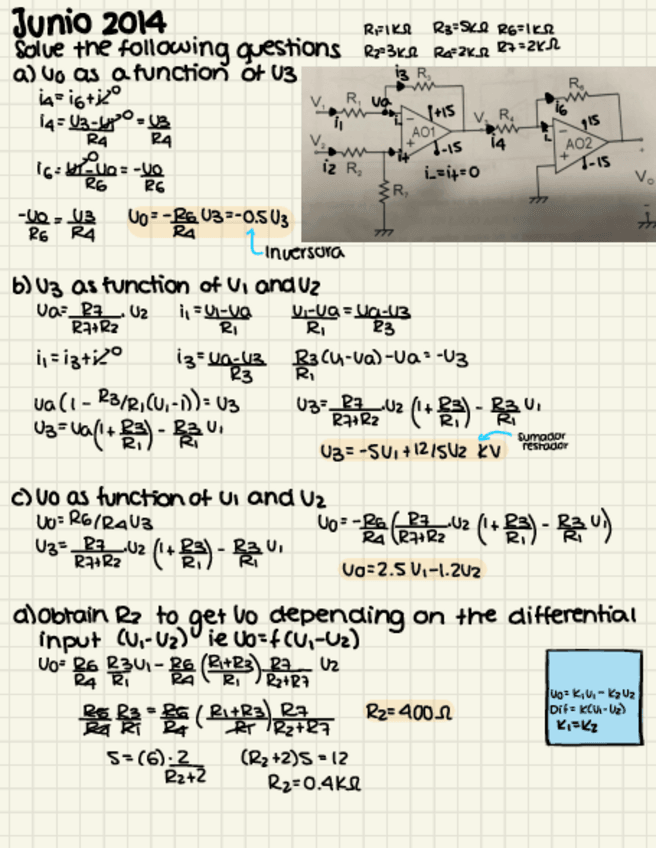 Junio 2014
R₁=1KΩ R₃=5KΩ R₆=1KΩ
R₂=3KΩ R₄=2KΩ R₇=2KΩ
Solve the following questions
a) U₀ as a function of U₃
i₄ = i₆ + i₋⁰
i₄ = U₃-U₋⁰/R₄ = U₃/R₄
i₆ = U₋⁰-U₀/R₆ = -U₀/R₆
-U₀/R₆ = U₃/R₄ U₀ = -R₆/R₄ U₃ = -0.5 U₃
Inversora
i₃ R₃
V₁ R₁ Ua i₁ i₋ +15 AO1 -15 i₊
V₂ i₂ R₂ R₇ i₋=i₊=0
V₃ R₄ i₄ i₆ R₆ i₋ 15 AO2 -15 V₀
b) U₃ as function of U₁ and U₂
Ua = R₇/R₇+R₂ · U₂ i₁ = U₁-Ua/R₁ U₁-Ua/R₁ = Ua-U₃/R₃
i₁ = i₃ + i₋⁰ i₃ = Ua-U₃/R₃ R₃/R₁ (U₁-Ua) - Ua = -U₃
Ua (1 - R₃/R₁(U₁-1)) = U₃ U₃ = R₇/R₇+R₂ · U₂ (1 + R₃/R₁) - R₃/R₁ U₁
U₃ = Ua (1 + R₃/R₁) - R₃/R₁ U₁
U₃ = -5U₁ + 12/5U₂ KV
Sumador
restador
c) U₀ as function of U₁ and U₂
U₀ = R₆/R₄ U₃ U₀ = -R₆/R₄ (R₇/R₇+R₂ · U₂ (1 + R₃/R₁) - R₃/R₁ U₁)
U₃ = R₇/R₇+R₂ · U₂ (1 + R₃/R₁) - R₃/R₁ U₁
U₀ = 2.5 U₁ - 1.2U₂
d) Obtain R₂ to get U₀ depending on the differential
input (U₁-U₂) ie U₀ = f(U₁-U₂)
U₀ = R₆/R₄ R₃/R₁ U₁ - R₆/R₄ (R₁+R₃/R₁) R₇/R₂+R₇ U₂
R₆/R₄ R₃/R₁ = R₆/R₄ (R₁+R₃/R₁) R₇/R₂+R₇ R₂ = 400Ω
5 = (6) · 2/R₂+2 (R₂+2)5 = 12
R₂ = 0.4KΩ
U₀ = K₁U₁ - K₂U₂
Dif = K(U₁-U₂)
K₁ = K₂